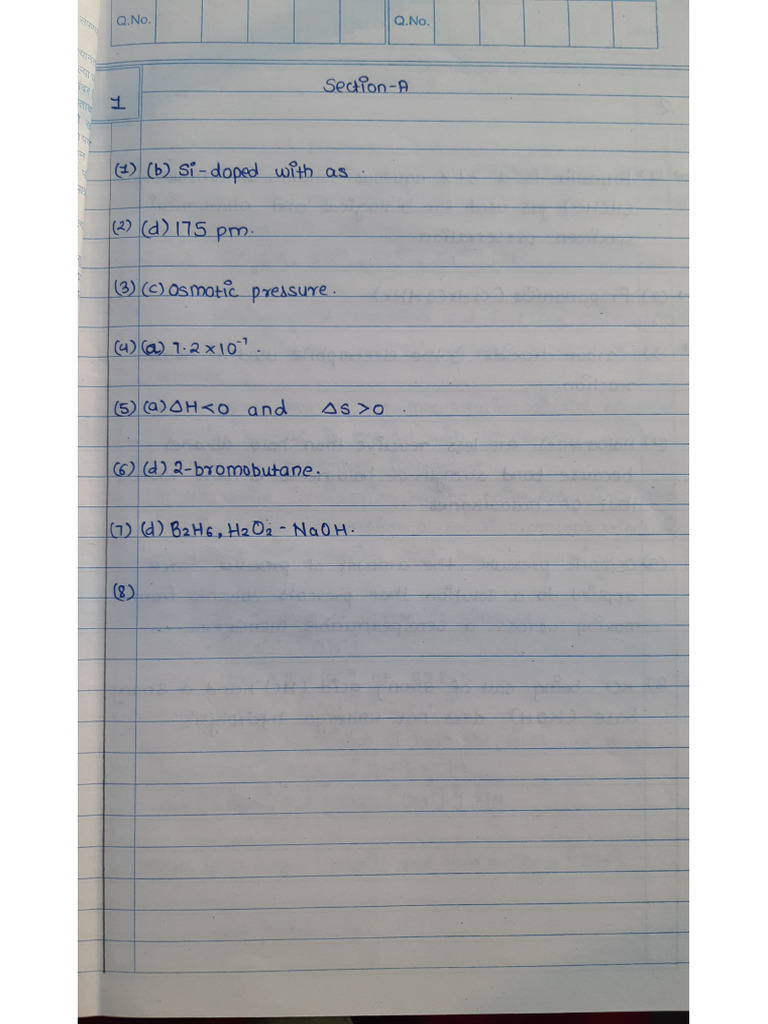 Q.No.
Q.No.
Section-A
1
(1) (b) Si-doped with as.
(2) (d) 175 pm.
(3) (c) Osmotic pressure.
(4) (a) 7.2 × 10⁻⁷.
(5) (a) ΔH<0 and ΔS>0.
(6) (d) 2-bromobutane.
(7) (d) B2H6, H2O2 - NaOH.
(8)